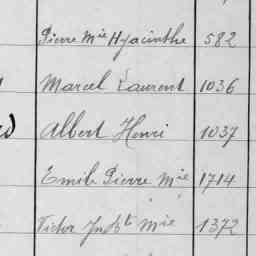 Pierre Mie Hyacinthe 582
Marcel Laurent 1036
Albert Henri 1037
Emile Pierre Mie 1714
Victor Jn Bte Mie 1372